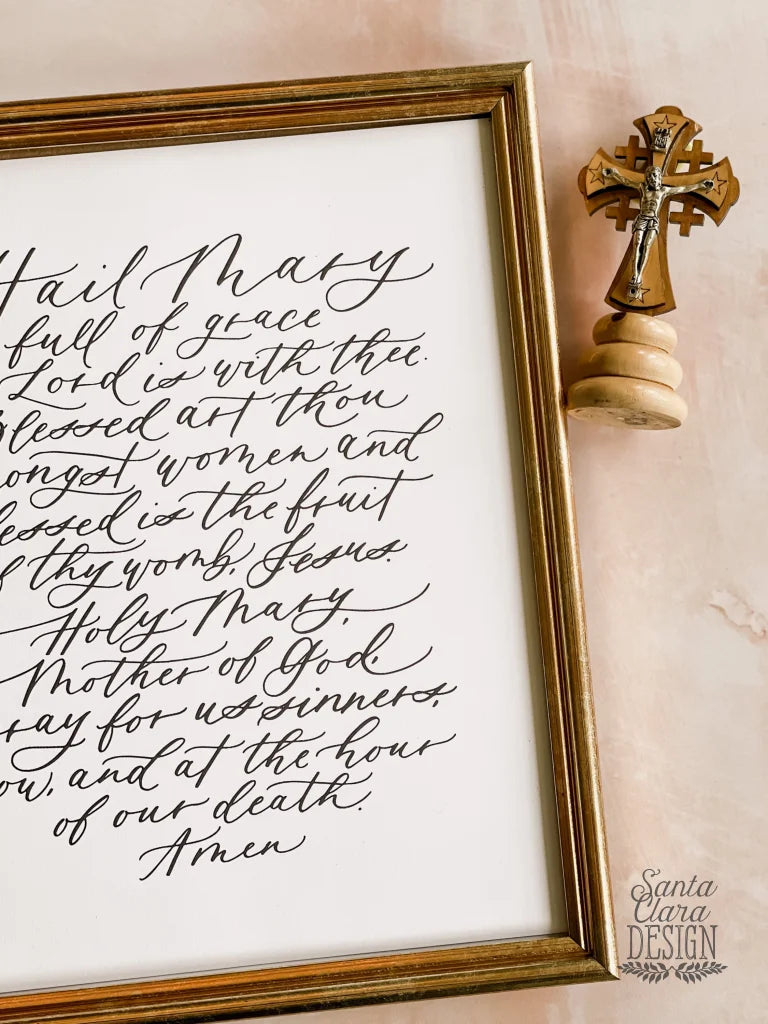 Hail Mary
full of grace
Lord is with thee.
Blessed art thou
ongst women and
lessed is the fruit
f thy womb, Jesus.
Holy Mary,
Mother of God,
ray for us sinners,
ow, and at the hour
of our death.
Amen
Santa
Clara
DESIGN